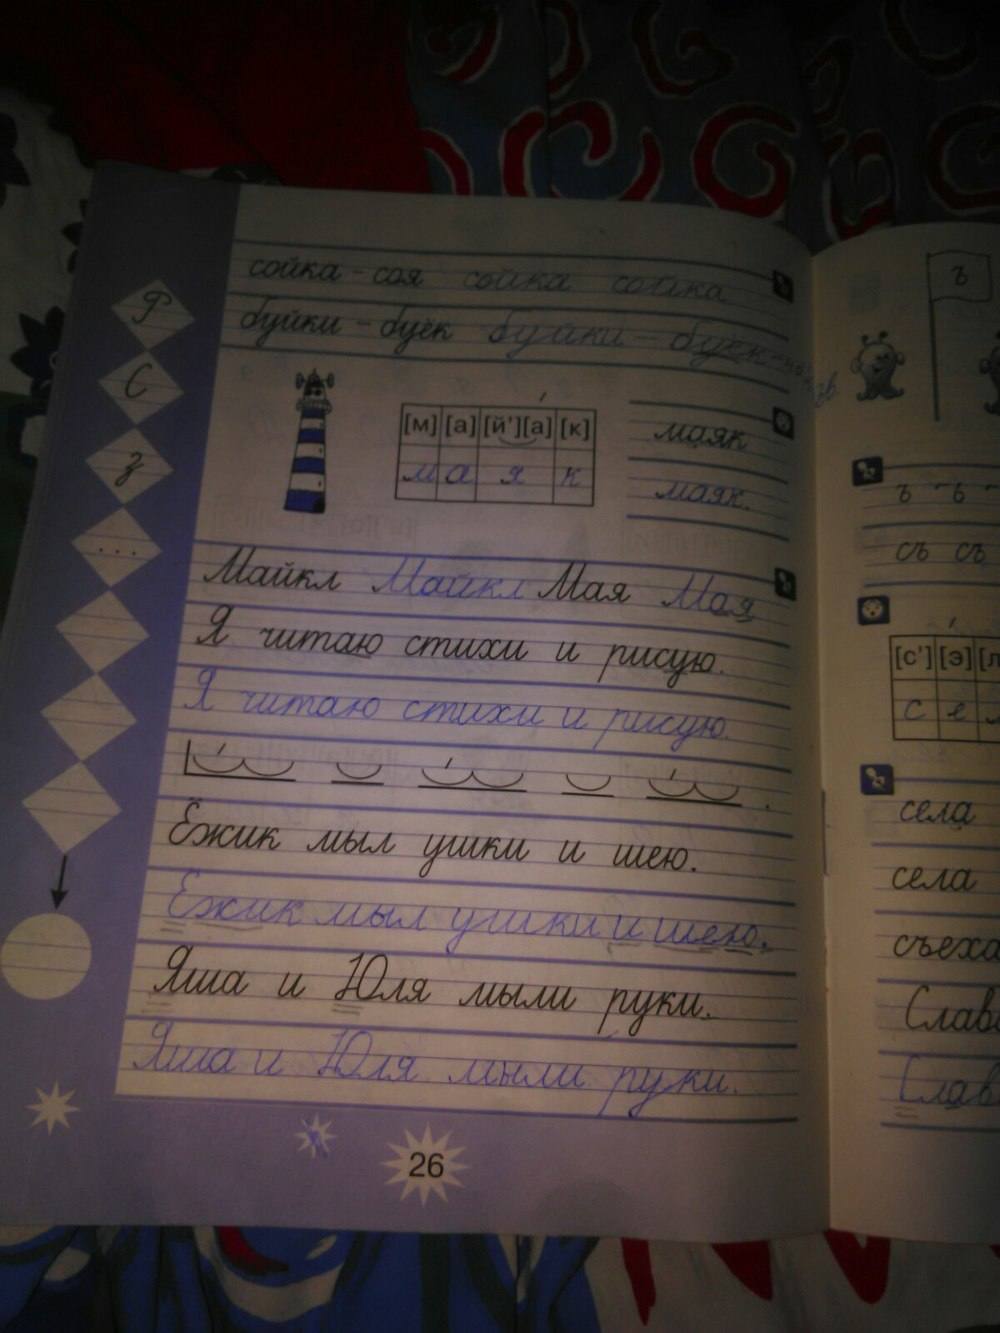 сойка - соя сойка сойка
буйки - буёк буйки - буёк
Ф
С
З
...
[м] [а] [й'][а] [к]
м а я к
маяк
маяк.
Майкл Майкл Мая Мая
Я читаю стихи и рисую.
Я читаю стихи и рисую.
Ёжик мыл ушки и шею.
Ёжик мыл ушки и шею.
Яша и Юля мыли руки.
Яша и Юля мыли руки.
26
ъ
ъ ъ
съ съ
[с'] [э] [л
с е л
села
села
съеха
Слав
Слав